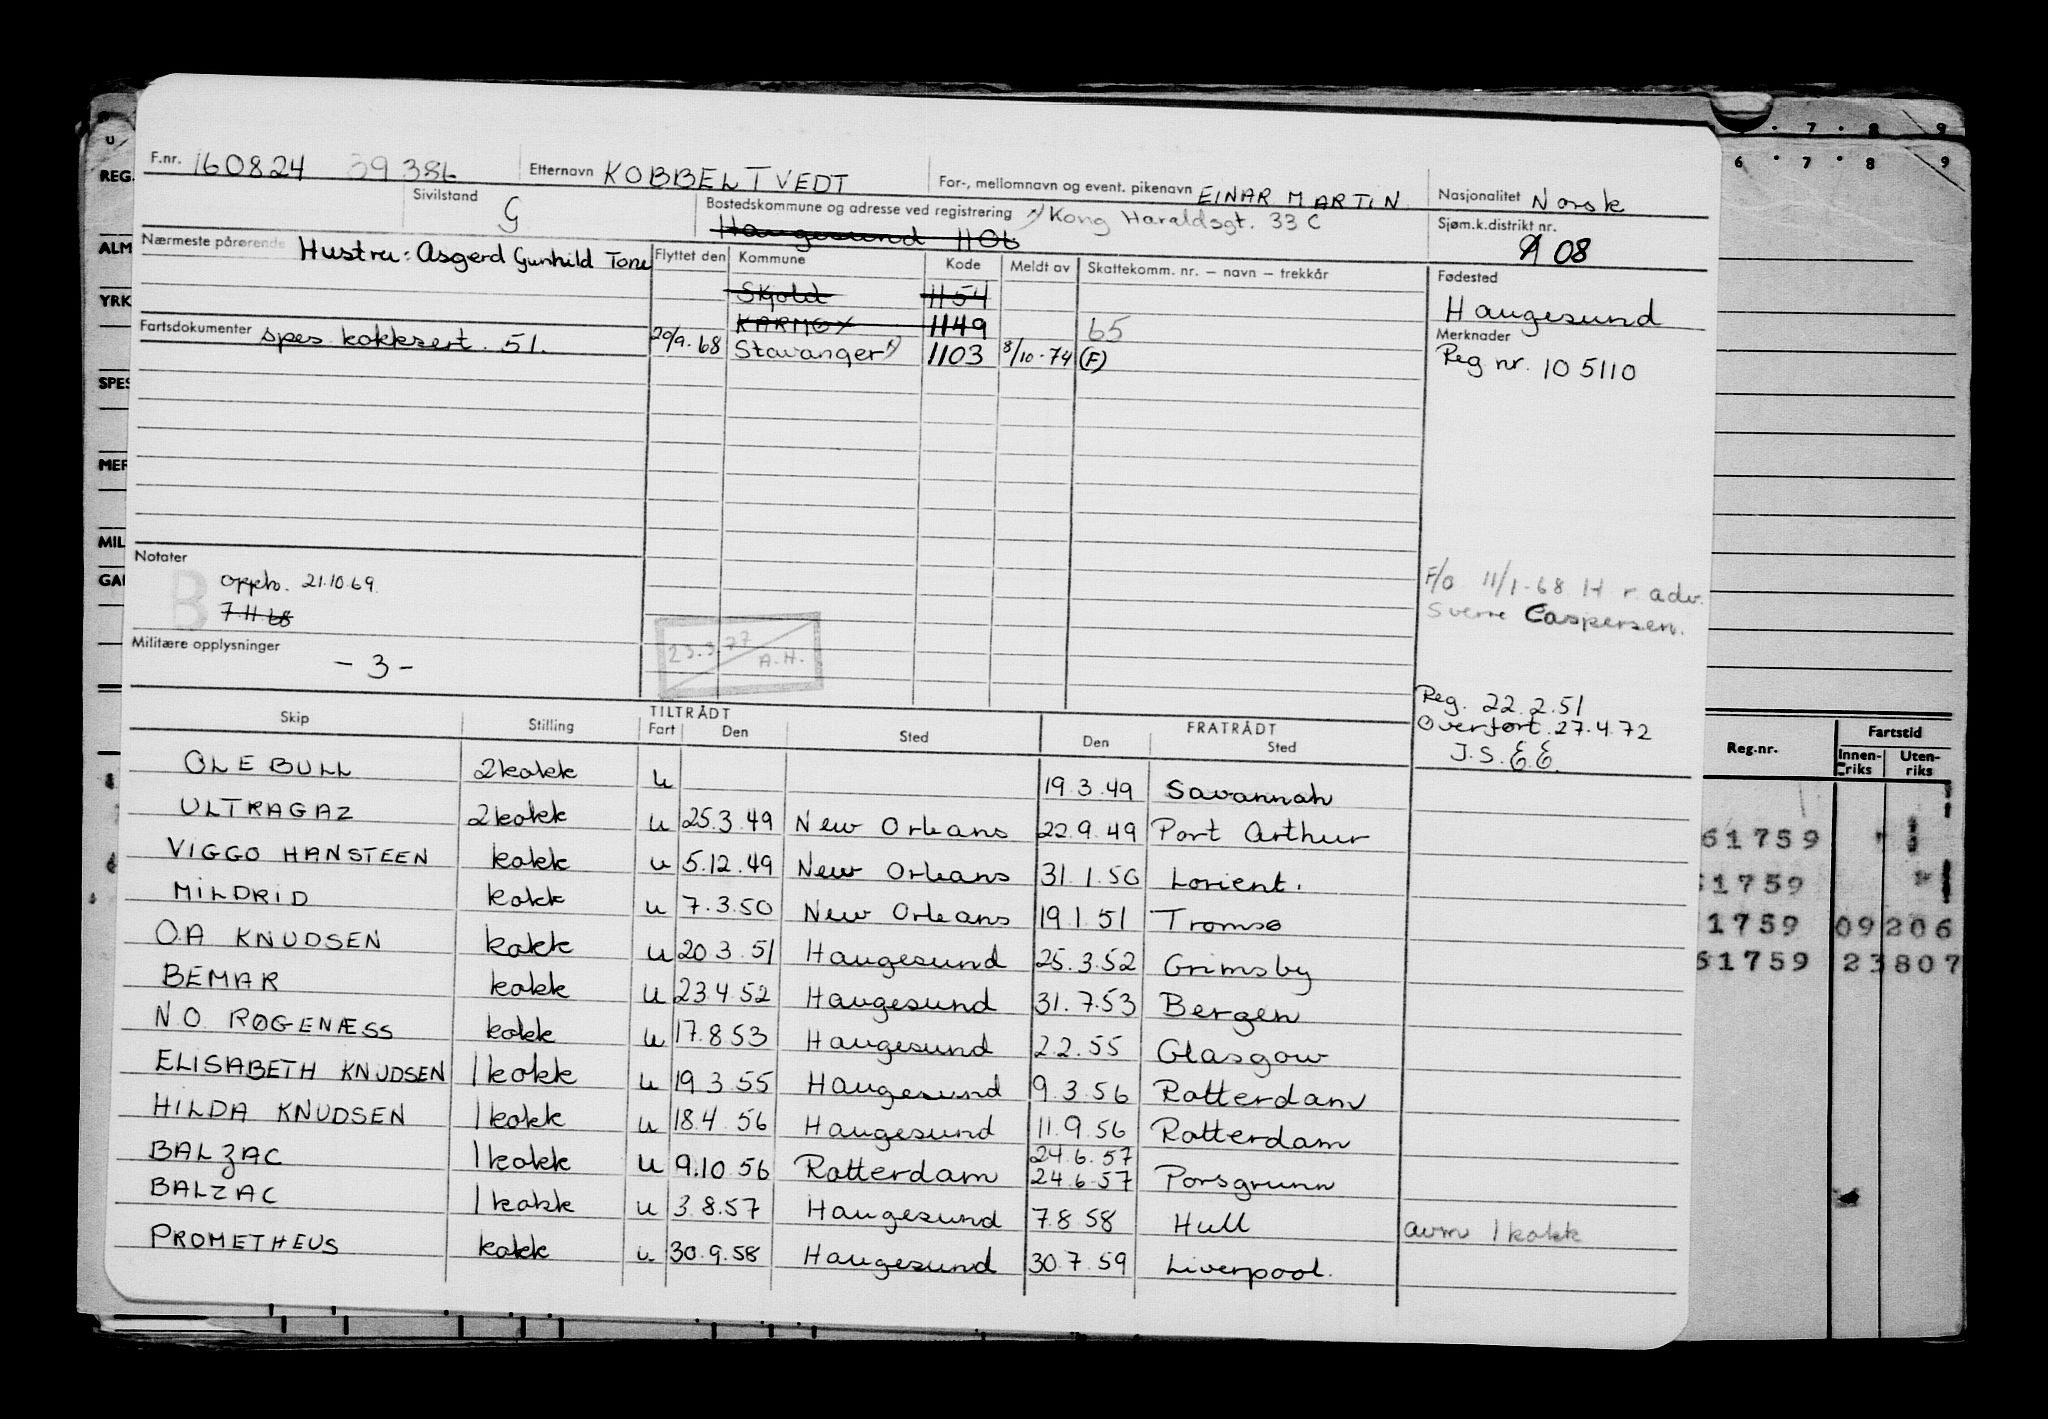 F.nr. 160824 39386 Etternavn KOBBELTVEDT For-, mellomnavn og event. pikenavn EINAR MARTIN Nasjonalitet Norsk
Sivilstand G Bostedskommune og adresse ved registrering x) Kong Haraldsgt. 33 C Sjøm.k.distrikt nr.
Haugesund 1106 A 08
Nærmeste pårørende Hustru: Asgerd Gunhild Tone Flyttet den Kommune Kode Meldt av Skattekomm. nr. – navn – trekkår Fødested
Skjold 1154 Haugesund
KARMØY 1149 65 Merknader
Fartsdokumenter spes. kokksert. 51. 20/9.68 Stavanger x) 1103 8/10-74 (F) Reg nr. 105110
Notater
Oppb. 21.10.69
7.11.68
F/o 11/1-68 H.r.adv.
Sverre Caspersen.
B
Militære opplysninger
- 3 -
23.3.77
A.H.
Reg. 22.2.51
Overført 27.4.72
J.S. E.E.
TILTRÅDT FRATRÅDT
Skip Stilling Fart Den Sted Den Sted
OLE BULL 2kokk u 19.3.49 Savannah
ULTRAGAZ 2kokk u 25.3.49 New Orleans 22.9.49 Port Arthur
VIGGO HANSTEEN kokk u 5.12.49 New Orleans 31.1.50 Lorient.
MILDRID kokk u 7.3.50 New Orleans 19.1.51 Tromsø
O.A KNUDSEN kokk u 20.3.51 Haugesund 25.3.52 Grimsby
BEMAR kokk u 23.4.52 Haugesund 31.7.53 Bergen
N.O. RØGENÆSS kokk u 17.8.53 Haugesund 2.2.55 Glasgow
ELISABETH KNUDSEN 1kokk u 19.3.55 Haugesund 9.3.56 Rotterdam
HILDA KNUDSEN 1kokk u 18.4.56 Haugesund 11.9.56 Rotterdam
24.6.57
BALZAC 1kokk u 9.10.56 Rotterdam 24.6.57 Porsgrunn
BALZAC 1kokk u 3.8.57 Haugesund 7.8.58 Hull avm 1kokk
PROMETHEUS kokk u. 30.9.58 Haugesund 30.7.59 Liverpool.
REG.
YRK
SPES
MIL
7 8 9
6 7 8 9
Reg.nr. Fartstid
Innen-riks Uten-riks
61759
1759
1759 09 206
61759 23 807